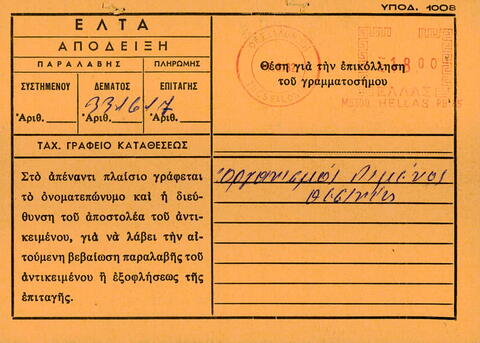 ΥΠΟΔ. 1008
ΕΛΤΑ
ΑΠΟΔΕΙΞΗ
ΠΑΡΑΛΑΒΗΣ
ΠΛΗΡΩΜΗΣ
ΣΥΣΤΗΜΕΝΟΥ
ΔΕΜΑΤΟΣ
ΕΠΙΤΑΓΗΣ
Ἀριθ.
Ἀριθ. 331617
Ἀριθ.
ΤΑΧ. ΓΡΑΦΕΙΟ ΚΑΤΑΘΕΣΕΩΣ
Στὸ ἀπέναντι πλαίσιο γράφεται
τὸ ὀνοματεπώνυμο καὶ ἡ διεύ-
θυνση τοῦ ἀποστολέα τοῦ ἀντι-
κειμένου, γιὰ νὰ λάβει τὴν αἰ-
τούμενη βεβαίωση παραλαβῆς τοῦ
ἀντικειμένου ἢ ἐξοφλήσεως τῆς
ἐπιταγῆς.
Θέση γιὰ τὴν ἐπικόλληση
τοῦ γραμματοσήμου
18 00
ΕΛΛΑΣ
HELLAS
Οργανισμός Λιμένος
Θεσ/νίκης